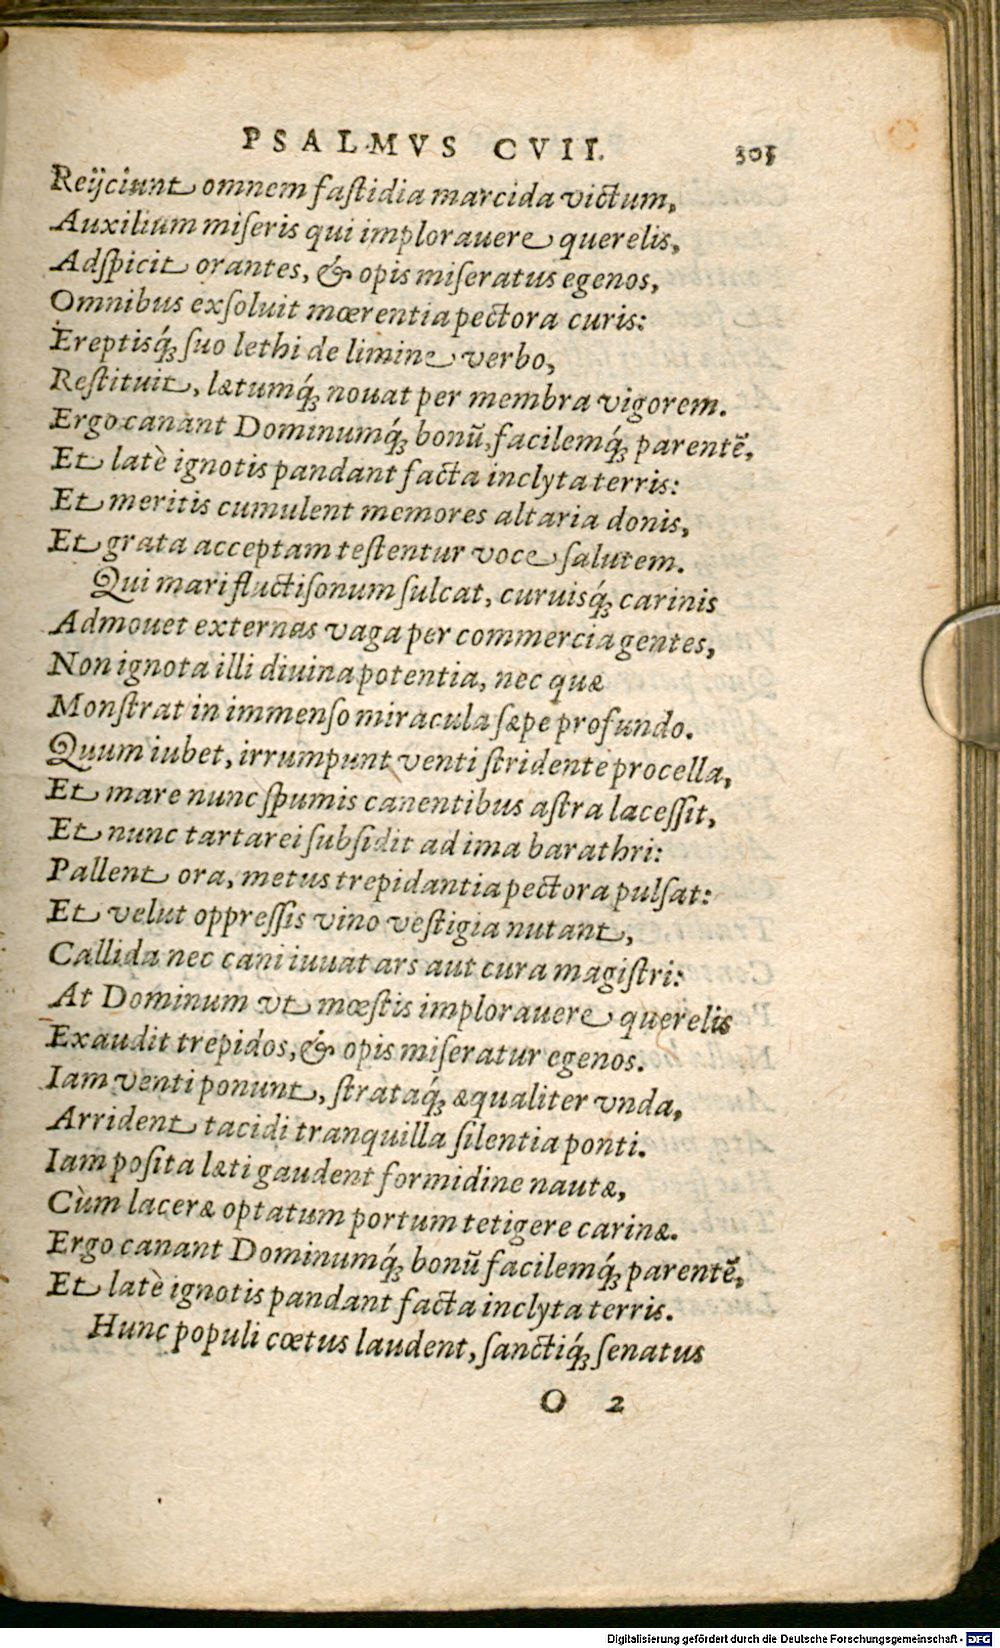 PSALMVS CVII. 305
Reijciunt omnem faſtidia marcida victum,
Auxilium miſeris qui implorauere querelis,
Adſpicit orantes, & opis miſeratus egenos,
Omnibus exſoluit mœrentia pectora curis:
Ereptisq́; ſuo lethi de limine verbo,
Reſtituit, lætumq́; nouat per membra vigorem.
Ergo canant Dominumq́; bonũ, facilemq́; parentẽ,
Et latè ignotis pandant facta inclyta terris:
Et meritis cumulent memores altaria donis,
Et grata acceptam teſtentur voce ſalutem.
Qui mari fluctiſonum ſulcat, curuisq́; carinis
Admouet externas vaga per commercia gentes,
Non ignota illi diuina potentia, nec quæ
Monſtrat in immenſo miracula ſæpe profundo.
Quum iubet, irrumpunt venti ſtridente procella,
Et mare nunc ſpumis canentibus aſtra laceſſit,
Et nunc tartarei ſubſidit ad ima barathri:
Pallent ora, metus trepidantia pectora pulſat:
Et velut oppreſſis vino veſtigia nutant,
Callida nec cani iuuat ars aut cura magiſtri:
At Dominum vt mœſtis implorauere querelis
Exaudit trepidos, & opis miſeratur egenos.
Iam venti ponunt, ſtrataq́; æqualiter vnda,
Arrident tacidi tranquilla ſilentia ponti.
Iam poſita læti gaudent formidine nautæ,
Cùm laceræ optatum portum tetigere carinæ.
Ergo canant Dominumq́; bonũ facilemq́; parentẽ,
Et latè ignotis pandant facta inclyta terris.
Hunc populi cœtus laudent, ſanctiq́; ſenatus
O 2
Digitalisierung gefördert durch die Deutsche Forschungsgemeinschaft - DFG